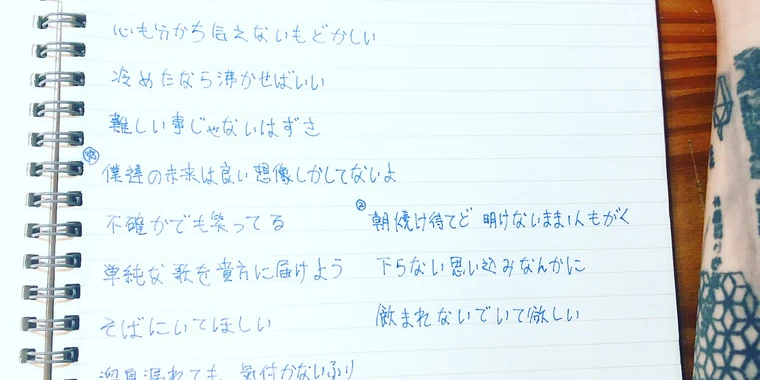 心も分かち合えないもどかしい
冷めたなら沸かせばいい
難しい事じゃないはずさ
僕達の未来は良い想像しかしてないよ
不確かでも笑ってる
単純な歌を貴方に届けよう
そばにいてほしい
漏れても 気付かないふり
② 朝焼け待てど 明けないまま1人もがく
下らない思い込みなんかに
飲まれないでいて欲しい